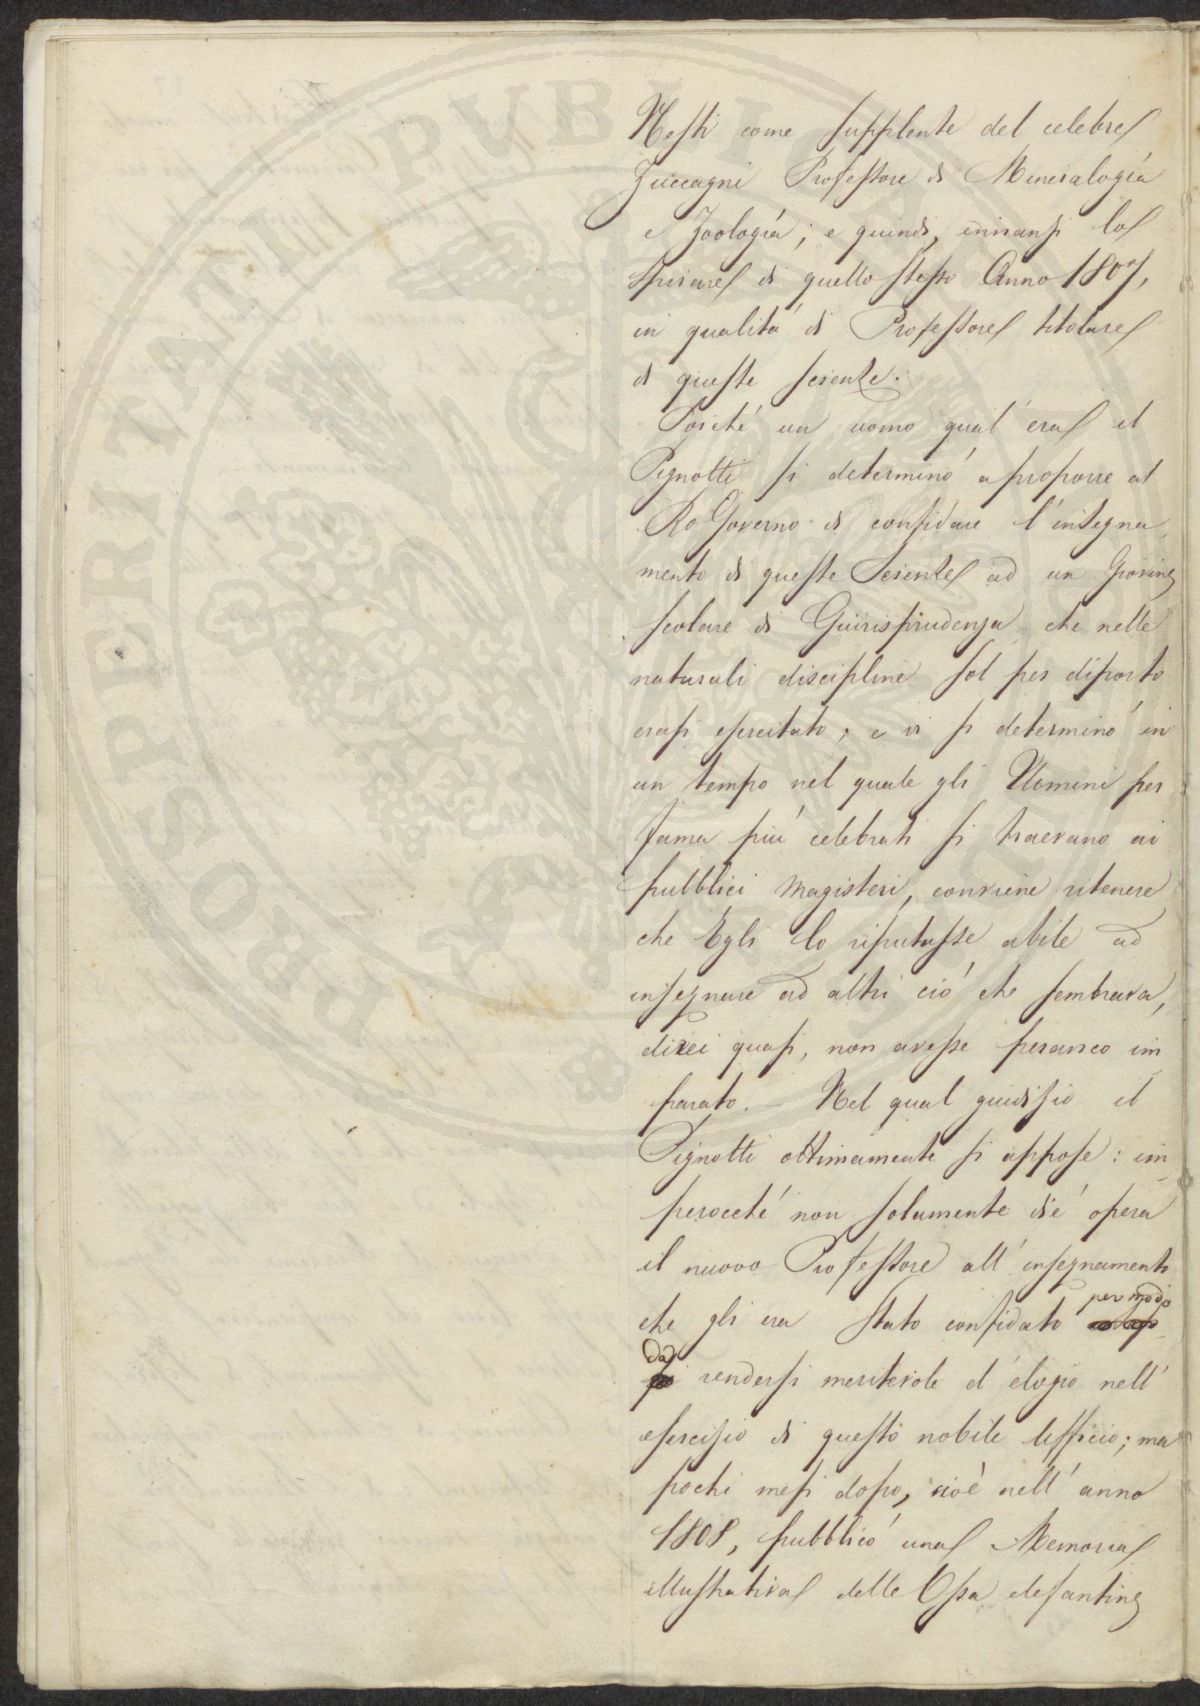 PVBLICA
PROSPERITATI
Nesti come supplente del celebre
Zuccagni Professore di Mineralogía
e Zoología; e quindi, innanzi lo
spirare di quello stesso Anno 1807,
in qualitá di Professore titolare
di queste scienze.
Poiché un uomo qual'era il
Pignotti si determinó a proporre al
Ro Governo di confidare l'insegna
mento di queste Scienze ad un Giovine
scolare di Giurisprudenza che nelle
naturali discipline sol per diporto
erasi esercitato; e vi si determinó in
un tempo nel quale gli Uomini per
fama piú celebrati si traevano ai
pubblici Magisteri, conviene ritenere
che Egli lo riputasse abile ad
insegnare ad altri ció che sembrava,
direi quasi, non avesse peranco im
parato. — Nel qual giudizio il
Pignotti ottimamente si appose: im
perocché non solamente dié opera
il nuovo Professore all'insegnamento
che gli era stato confidato per modo
da rendersi meritevole d'elogio nell'
esercizio di questo nobile Uffizio; ma
pochi mesi dopo, cioè nell'anno
1808, pubblicó una Memoria
illustrativa delle Ossa elefantine